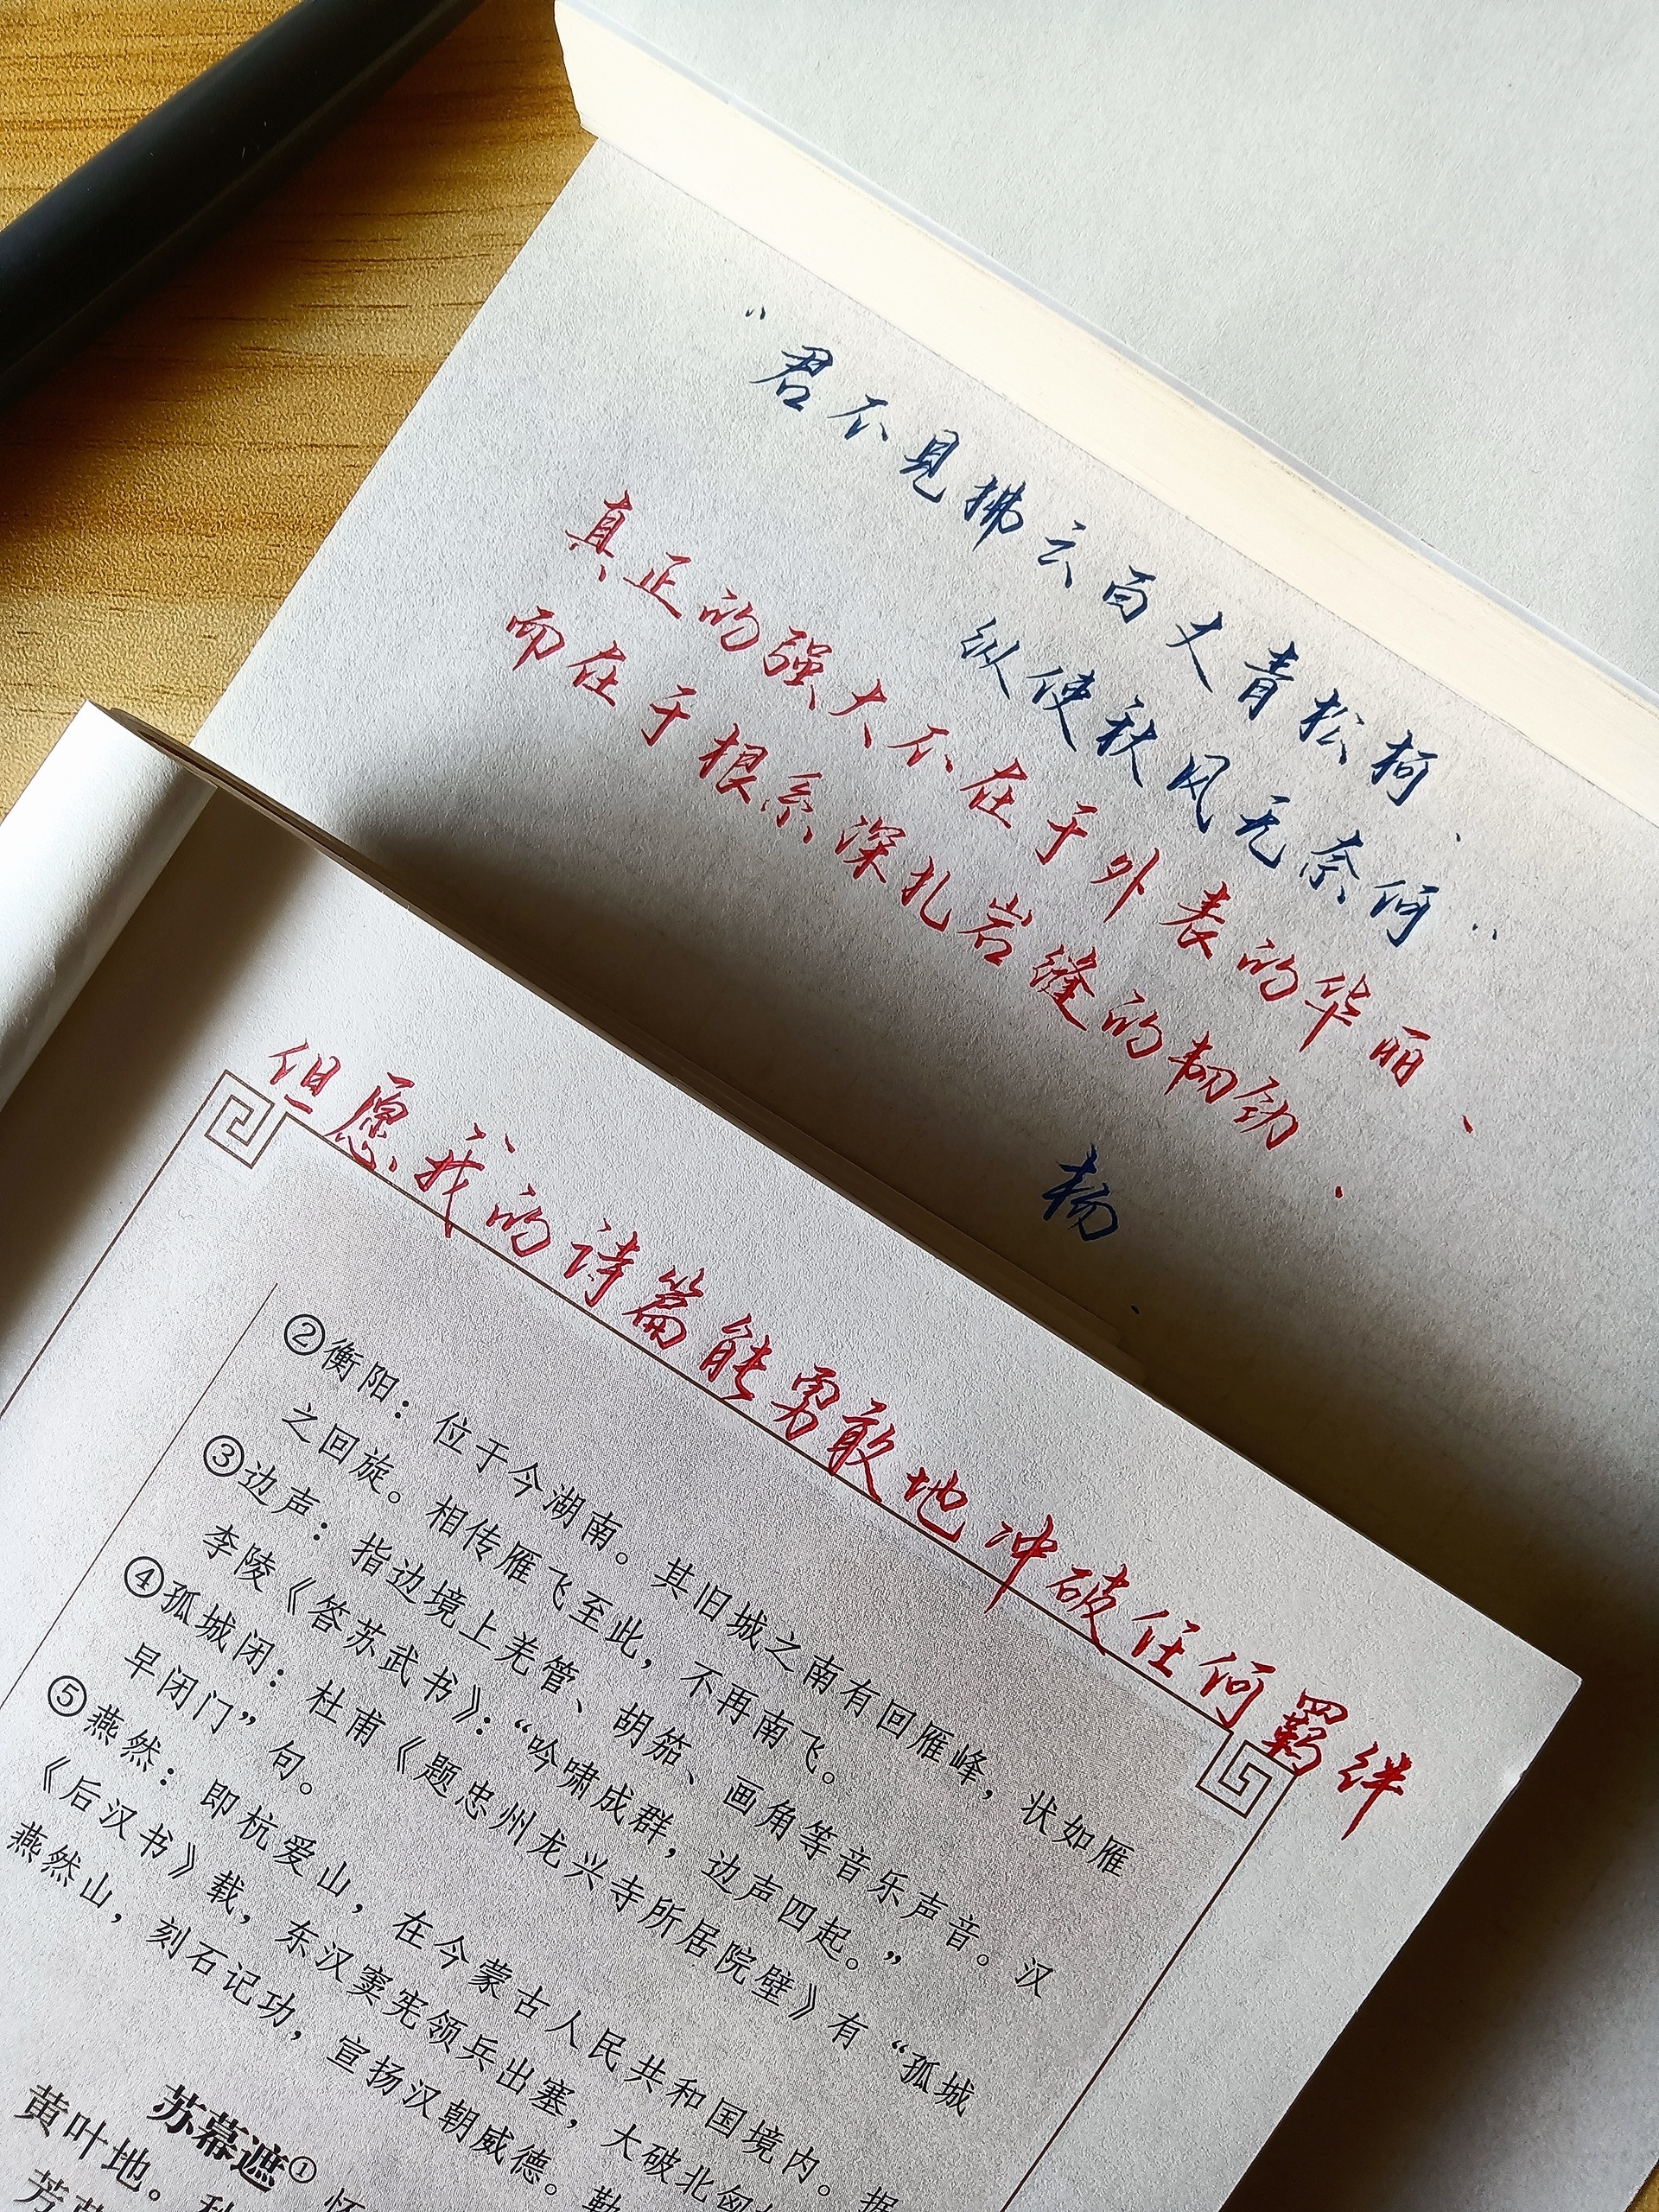 “君不见拂云百丈青松柯、
纵使秋风无奈何”
真正的强大不在于外表的华丽、
而在于根系深扎岩缝的韧劲.
杨.
但愿我的诗篇能勇敢地冲破任何羁绊
②衡阳：位于今湖南。其旧城之南有回雁峰，状如雁
之回旋。相传雁飞至此，不再南飞。
③边声：指边境上羌管、胡笳、画角等音乐声音。汉
李陵《答苏武书》：“吟啸成群，边声四起。”
④孤城闭：杜甫《题忠州龙兴寺所居院壁》有“孤城
早闭门”句。
⑤燕然：即杭爱山，在今蒙古人民共和国境内。据
《后汉书》载，东汉窦宪领兵出塞，大破北匈
燕然山，刻石记功，宣扬汉朝威德。勒
苏幕遮① 怀
黄叶地。秋
芳草